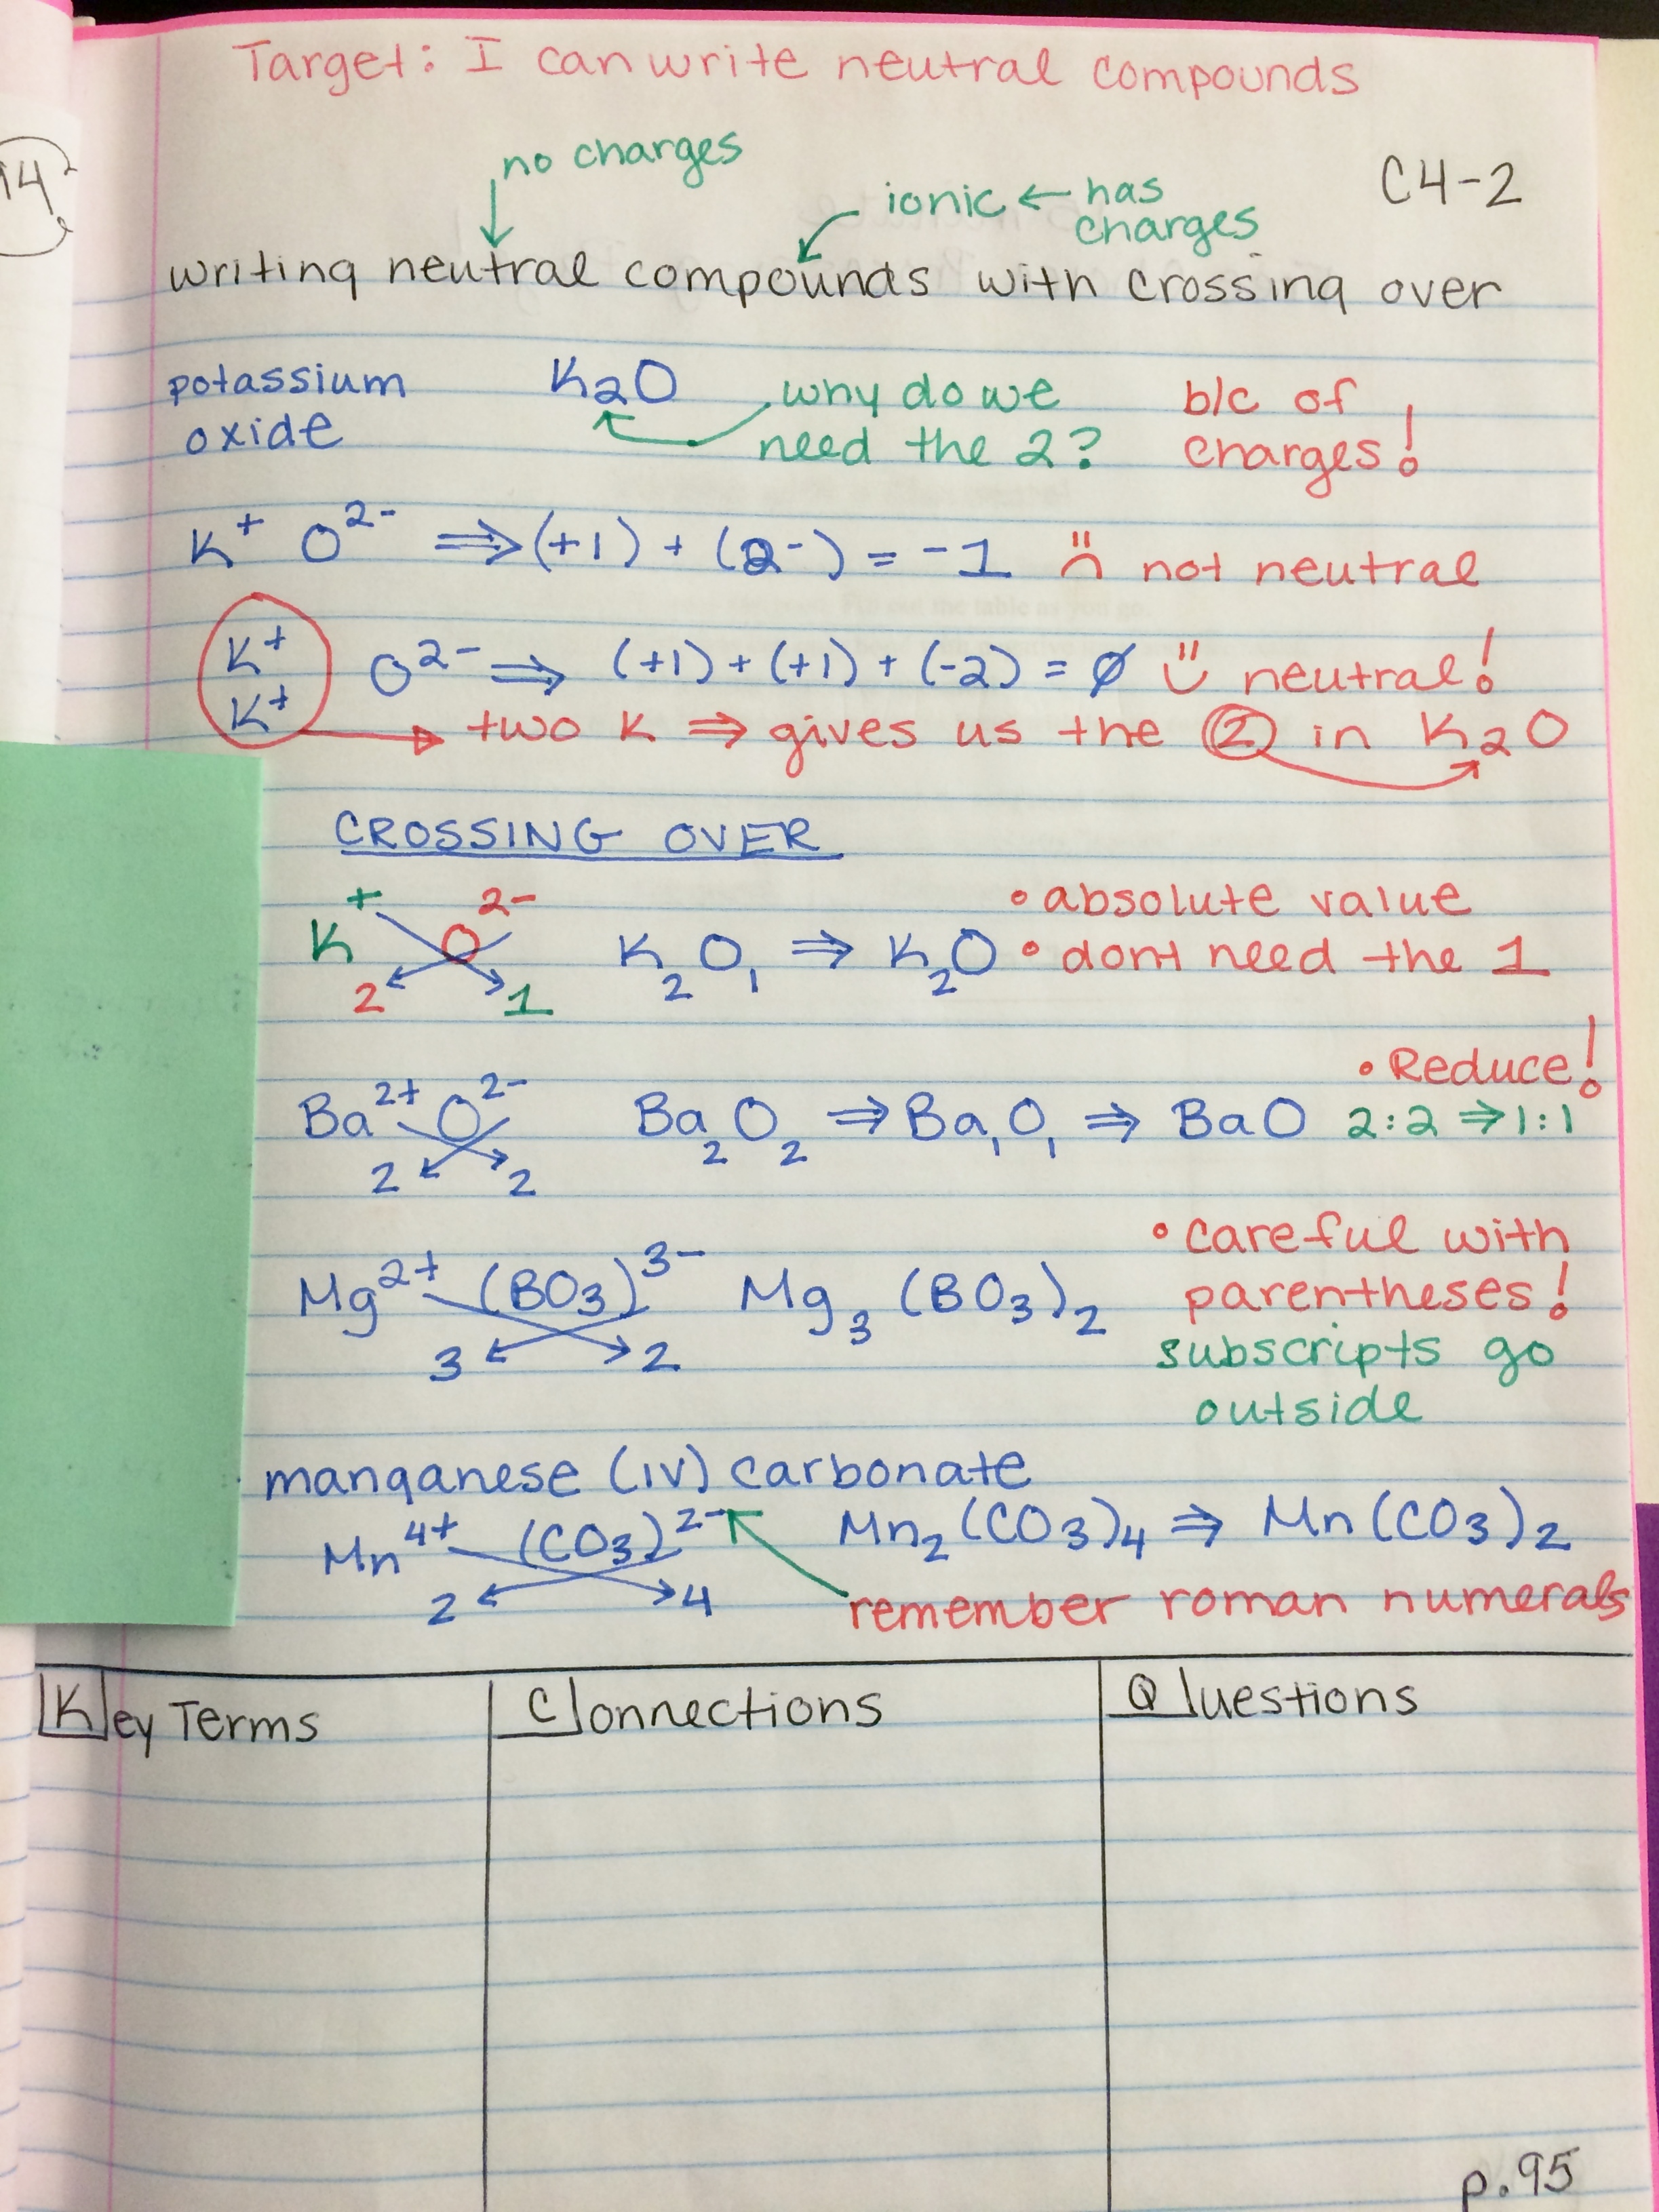 Target: I can write neutral compounds
no charges
ionic ← has charges
C4-2
writing neutral compounds with crossing over
potassium oxide K₂O why do we need the 2? b/c of charges!
K⁺ O²⁻ ⇒ (+1) + (2⁻) = -1 not neutral
K⁺ K⁺ O²⁻ ⇒ (+1) + (+1) + (-2) = ∅ neutral!
two K ⇒ gives us the 2 in K₂O
CROSSING OVER
K⁺ O²⁻ 2 1 K₂O₁ ⇒ K₂O
• absolute value
• dont need the 1
• Reduce!
Ba²⁺ O²⁻ 2 2 Ba₂O₂ ⇒ Ba₁O₁ ⇒ BaO 2:2 ⇒ 1:1
Mg²⁺ (BO₃)³⁻ 3 2 Mg₃(BO₃)₂
• careful with
parentheses!
subscripts go
outside
manganese (IV) carbonate
Mn⁴⁺ (CO₃)²⁻ 2 4 Mn₂(CO₃)₄ ⇒ Mn(CO₃)₂
remember roman numerals
Key Terms
Connections
Questions
p.95